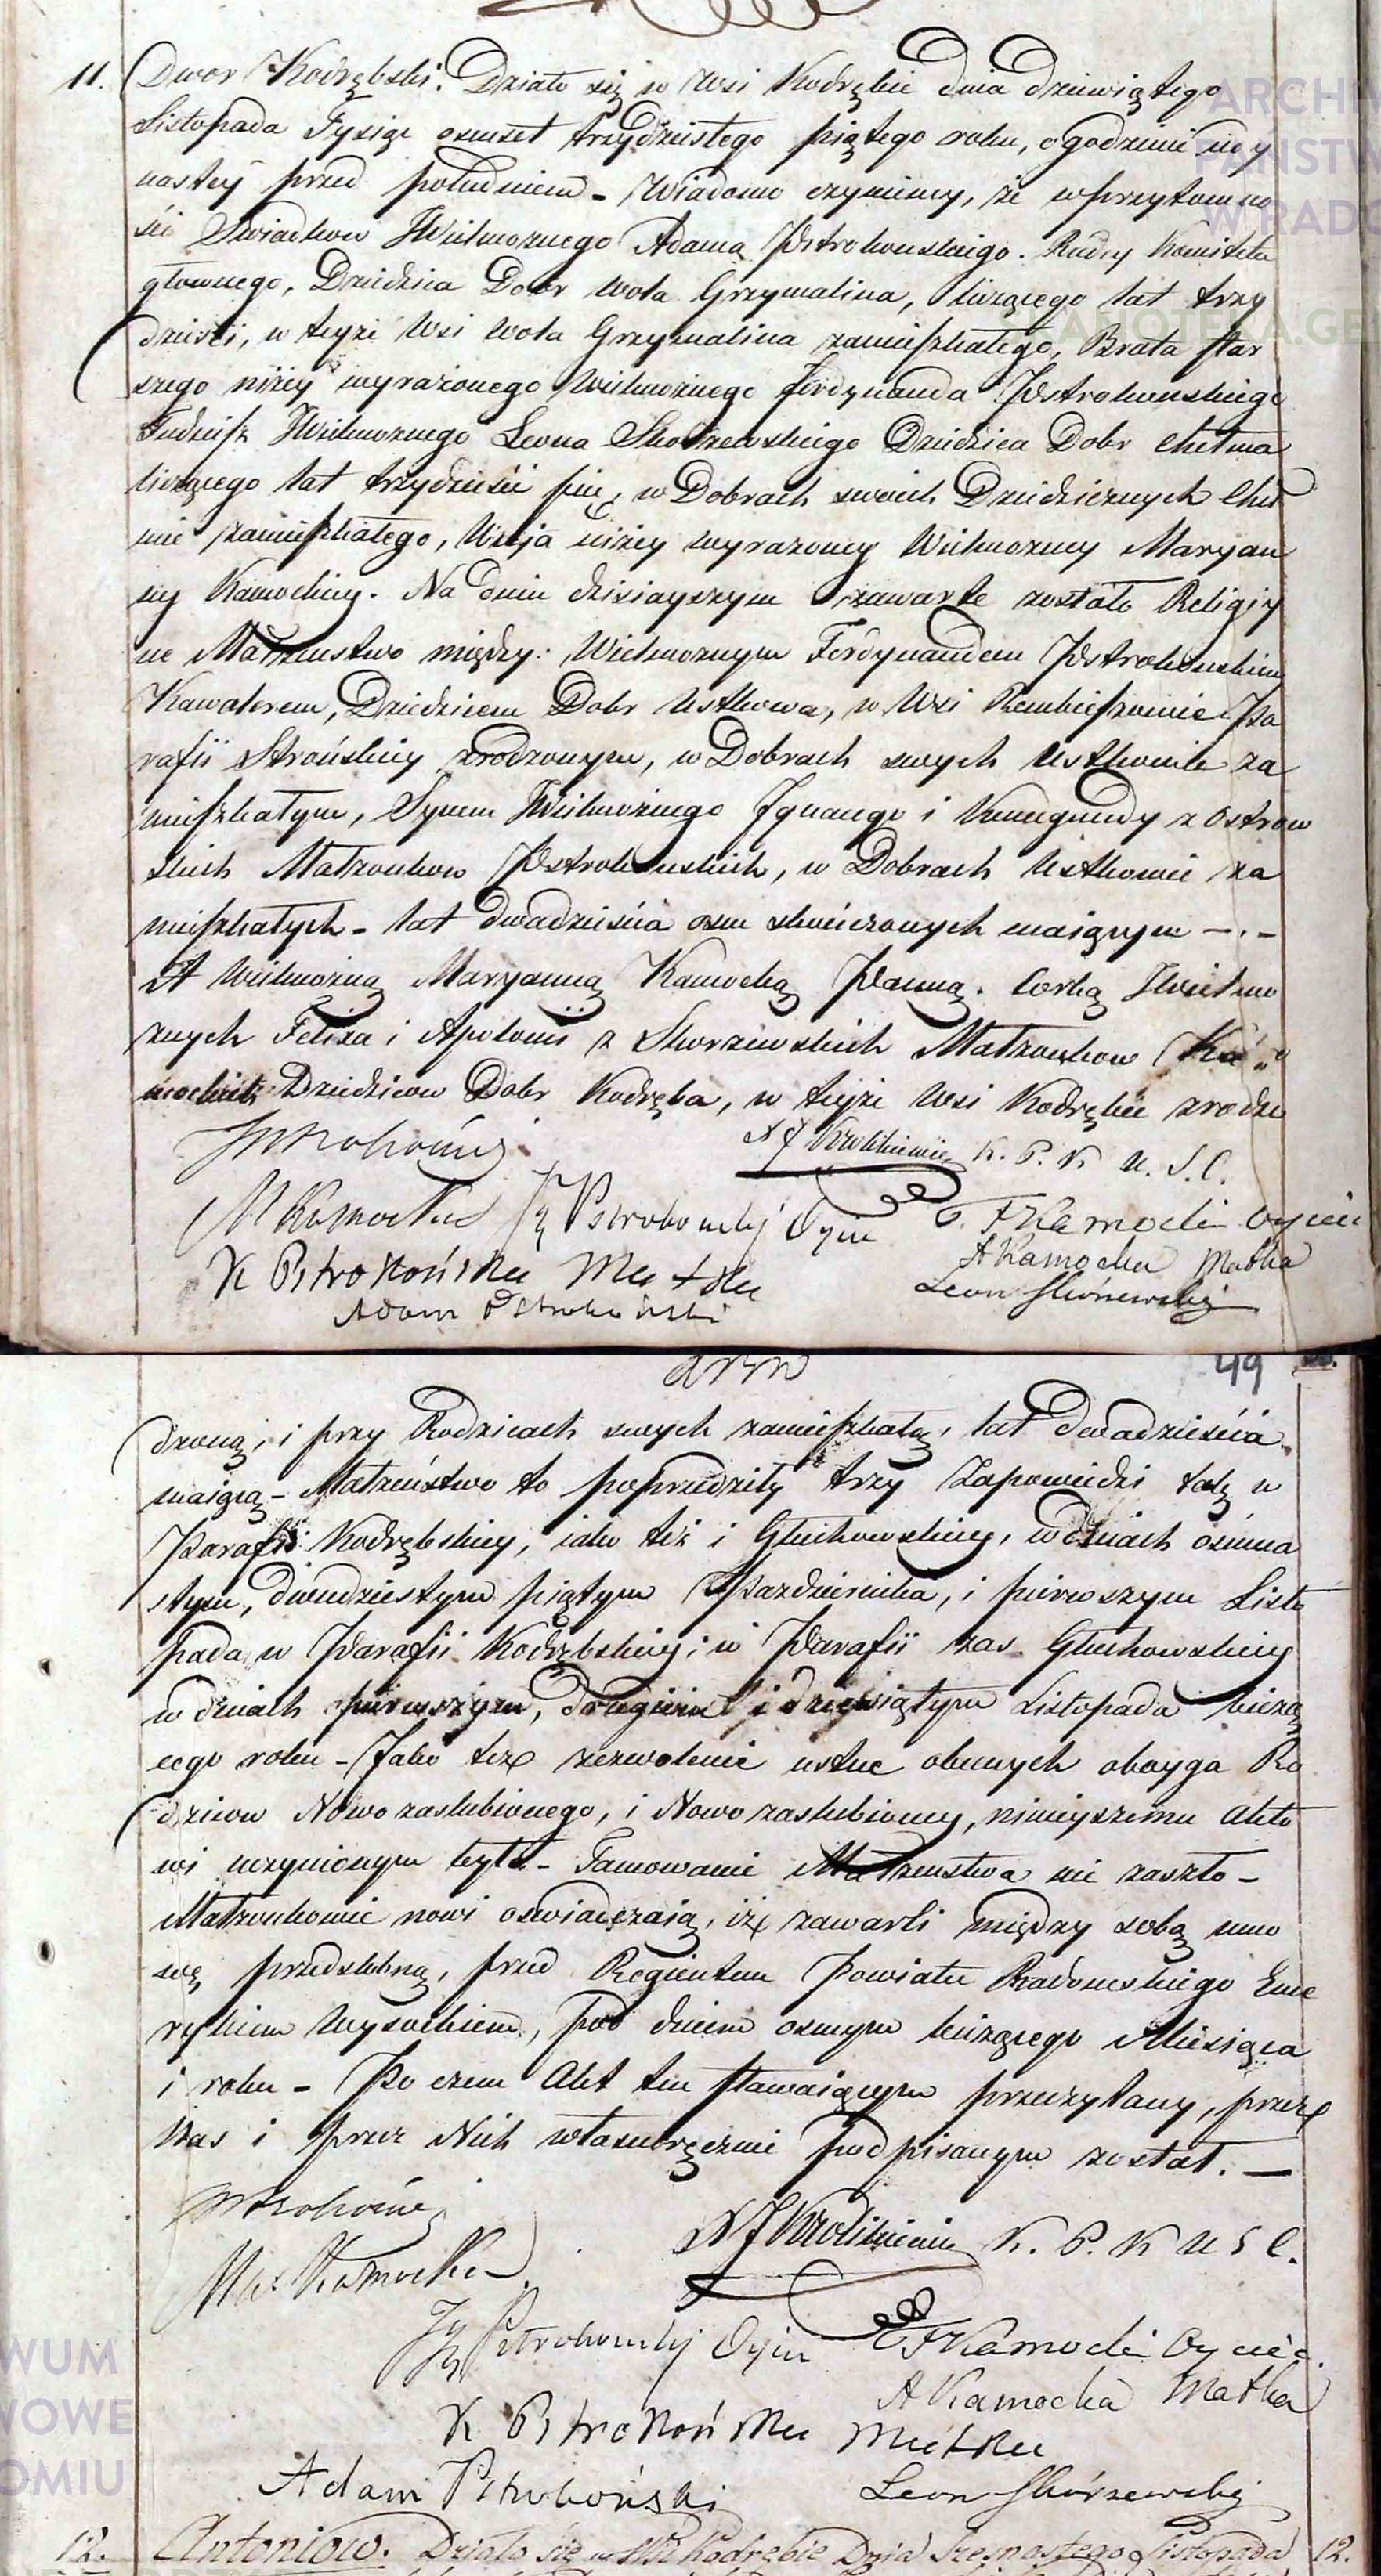 11. Dwor Kodrębski. Działo się w Wsi Kodrębie dnia dziewiątego
Listopada Tysiąc osmset trzydziestego piątego roku, o godzinie iedy
nastey przed południem - Wiadomo czyniemy, że w przytomno
ści Swiadkow JWielmoznego Adama Pstrokonskiego. Radcy Komitetu
głownego, Dziedzica Dobr Wola Grzymalina, liczącego lat trzy
dzieści, w teyże Wsi Wola Grzymalina zamieszkałego, Brata star
szego niżey wyrażonego Wielmożnego Ferdynanda Pstrokonskiego
Tudzież JWielmoznego Leona Skorzewskiego Dziedzica Dobr Chełma
liczącego lat trzydzieści pięć, w Dobrach swoich Dziedzicznych Cheł
mie zamieszkałego, Wuja niżey wyrazoney Wielmozney Maryan
ny Kamockiey. Na dniu dzisiayszym zawarte zostało Religiy
ne Małzenstwo między: Wielmoznym Ferdynandem Pstrokonskim
Kawalerem, Dziedzicem Dobr Ustkowa, w Wsi Rembieszowie Pa
rafii Strońskiey zrodzonym, w Dobrach swych Ustkowie za
mieszkałym, Synem JWielmożnego Ignacego i Kunegundy z Ostrow
skich Małzonkow Pstrokonskich, w Dobrach Ustkowie za
mieszkałych - lat dwadzieścia osm skończonych maiącym -.-
A Wielmożną Maryanną Kamocką Panną. Corką JWielmo
znych Felixa i Apolonii z Skorzewskich Małzonkow Ka
mockich Dziedzicow Dobr Kodręba, w teyże Wsi Kodrębie zrodzo
FPstrokoński
X J Krolikiewicz K. P. K U. S. C.
M Kamocka Ig Pstrokoński Oyciec F Kamocki Oyciec
K Pstrokońska Matka A Kamocka Matka
Adam Pstrokoński Leon Skórzewski
49
dzoną, i przy Rodzicach swych zamieszkałą, lat dwadzieścia
maiącą - Małzeństwo to poprzedziły trzy Zapowiedzi tak w
Parafii Kodrębskiey, iako też i Gluchowskiey, w dniach ośmna
stym, dwudziestym piątym Pazdziernika, i pierwszym Listo
pada, w Parafii Kodrębskiey; w Parafii zas Gluchowskiey
w dniach pierwszym, drugim i dziewiątym Listopada bieżą
cego roku - Jako też zezwolenie ustne obecnych oboyga Ro
dzicow Nowo zaslubionego, i Nowo zaslubioney, ninieyszemu Akto
wi uczynionym było - Tamowanie Małzenstwa nie zaszło -
Małzonkowie nowi oswiadczaią, iż zawarli między sobą umo
wę przedslubną, przed Regientem Powiatu Radomskiego Eme
rykiem Wysockiem, pod dniem osmym bieżącego Miesiąca
i roku - Po czem Akt ten stawaiącym przeczytany, przez
Nas i przez Nich własnoręcznie podpisanym został. -
FPstrokoński
X J Krolikiewicz K. P. K U S C.
Mar Kamocka
Ig Pstrokoński Oyciec F Kamocki Oyciec
A Kamocka Matka
K Pstrokońska Matka
Adam Pstrokoński Leon Skórzewski
12. Antoniow. Działo się w Wsi Kodrębie Dnia Szesnastego Listopada 12.
ARCHI
PAŃSTW
W RADO
WUM
WOWE
OMIU